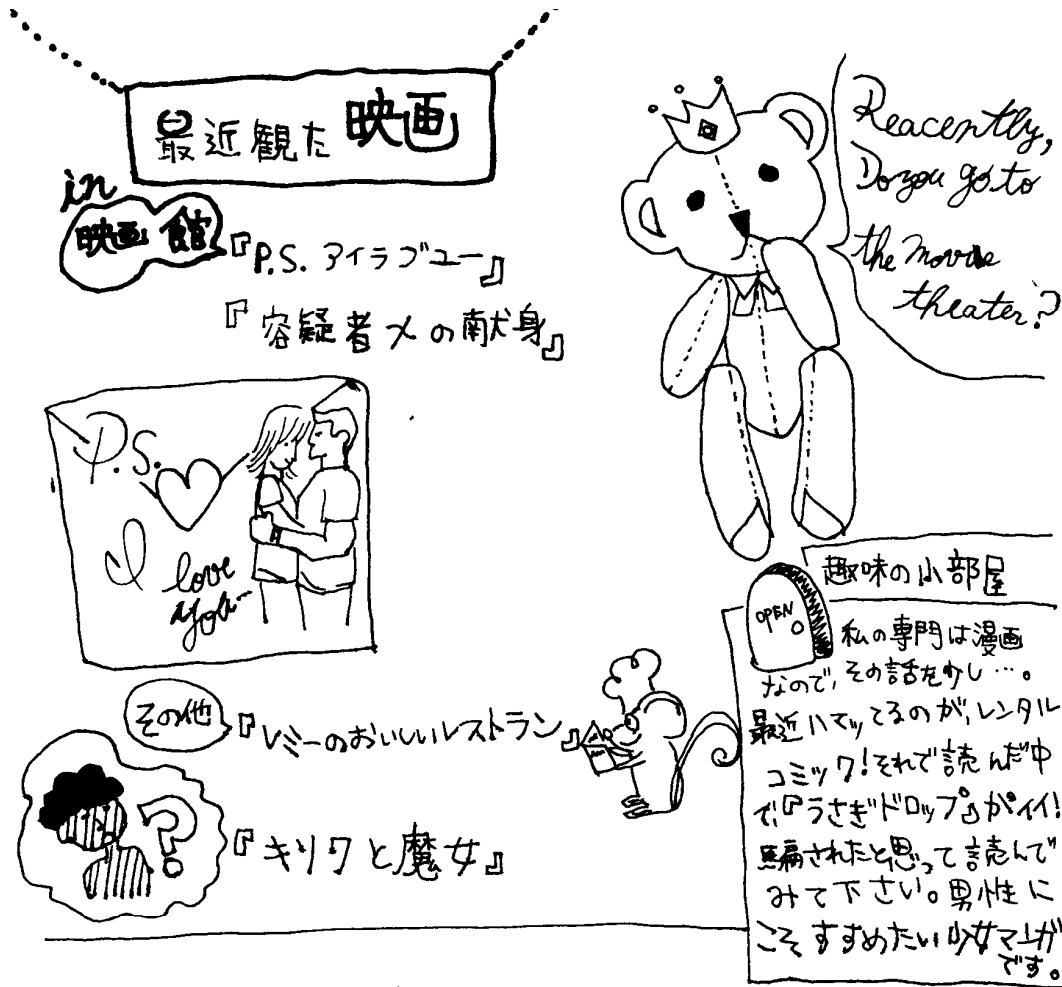 最近観た映画
in
映画館
『P.S. アイラブユー』
『容疑者Xの献身』
Reacently,
Do you go to
the movie
theater?
P.S.
I
love
you…
その他
『レミーのおいしいレストラン』
?
『キリクと魔女』
趣味の小部屋
OPEN
私の専門は漫画
なので、その話を少し…。
最近ハマッてるのが、レンタル
コミック!それで読んだ中
で、『うさぎドロップ』がイイ!
騙されたと思って読んで
みて下さい。男性に
こそすすめたい少女マンガ
です。